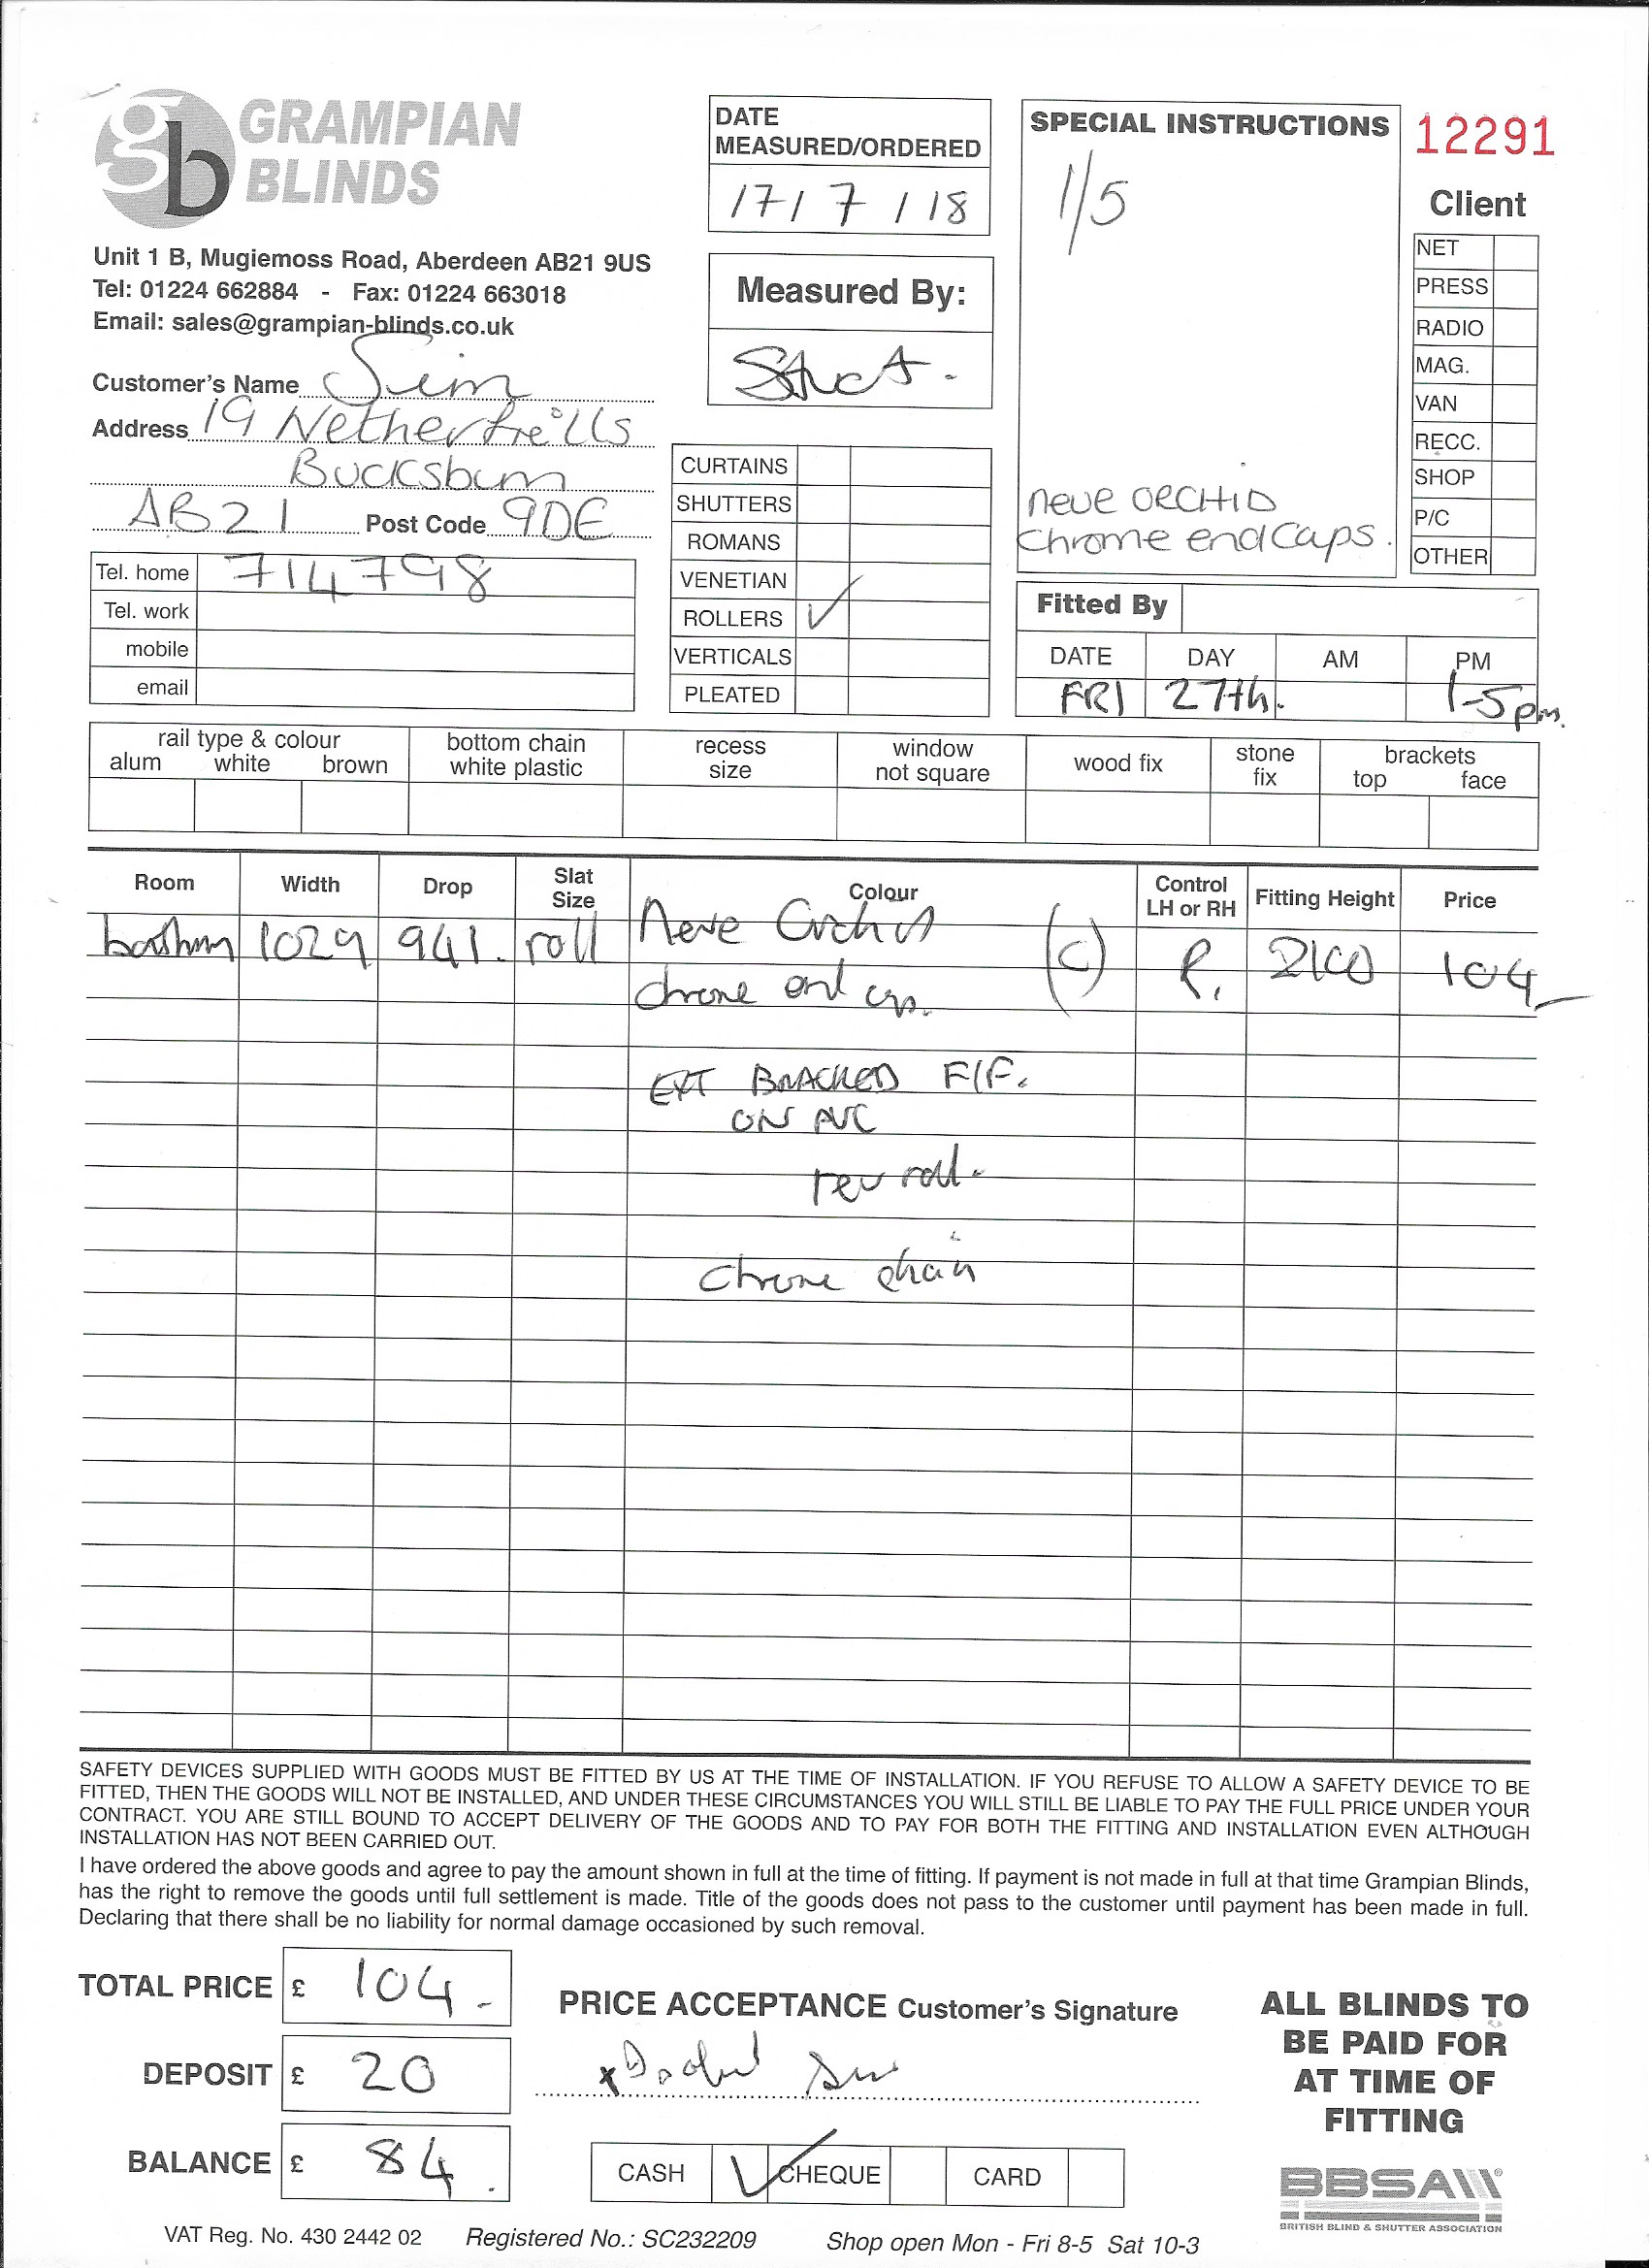 gb GRAMPIAN
BLINDS
Unit 1 B, Mugiemoss Road, Aberdeen AB21 9US
Tel: 01224 662884 - Fax: 01224 663018
Email: sales@grampian-blinds.co.uk
Customer's Name Sim
Address 19 Netherhills
Bucksburn
AB21 Post Code 9DE
Tel. home 714798
Tel. work
mobile
email
DATE
MEASURED/ORDERED
17/7/18
Measured By:
CURTAINS
SHUTTERS
ROMANS
VENETIAN
ROLLERS ✓
VERTICALS
PLEATED
SPECIAL INSTRUCTIONS
1/5
neve ORCHID
chrome end caps.
12291
Client
NET
PRESS
RADIO
MAG.
VAN
RECC.
SHOP
P/C
OTHER
Fitted By
DATE DAY AM PM
FRI 27th. 1-5pm.
rail type & colour
alum white brown
bottom chain
white plastic
recess
size
window
not square
wood fix
stone
fix
brackets
top face
Room Width Drop Slat Size Colour Control LH or RH Fitting Height Price
1029 941. roll Neve Orchid (C) R. 2100 104
chrome end caps.
EXT BRACKED F/F.
ON PVC
rev roll.
Chrome chain
SAFETY DEVICES SUPPLIED WITH GOODS MUST BE FITTED BY US AT THE TIME OF INSTALLATION. IF YOU REFUSE TO ALLOW A SAFETY DEVICE TO BE
FITTED, THEN THE GOODS WILL NOT BE INSTALLED, AND UNDER THESE CIRCUMSTANCES YOU WILL STILL BE LIABLE TO PAY THE FULL PRICE UNDER YOUR
CONTRACT. YOU ARE STILL BOUND TO ACCEPT DELIVERY OF THE GOODS AND TO PAY FOR BOTH THE FITTING AND INSTALLATION EVEN ALTHOUGH
INSTALLATION HAS NOT BEEN CARRIED OUT.
I have ordered the above goods and agree to pay the amount shown in full at the time of fitting. If payment is not made in full at that time Grampian Blinds,
has the right to remove the goods until full settlement is made. Title of the goods does not pass to the customer until payment has been made in full.
Declaring that there shall be no liability for normal damage occasioned by such removal.
TOTAL PRICE £ 104.-
DEPOSIT £ 20
BALANCE £ 84.
PRICE ACCEPTANCE Customer's Signature
x
CASH ✓ CHEQUE CARD
ALL BLINDS TO
BE PAID FOR
AT TIME OF
FITTING
BBSA
BRITISH BLIND & SHUTTER ASSOCIATION
VAT Reg. No. 430 2442 02 Registered No.: SC232209 Shop open Mon - Fri 8-5 Sat 10-3